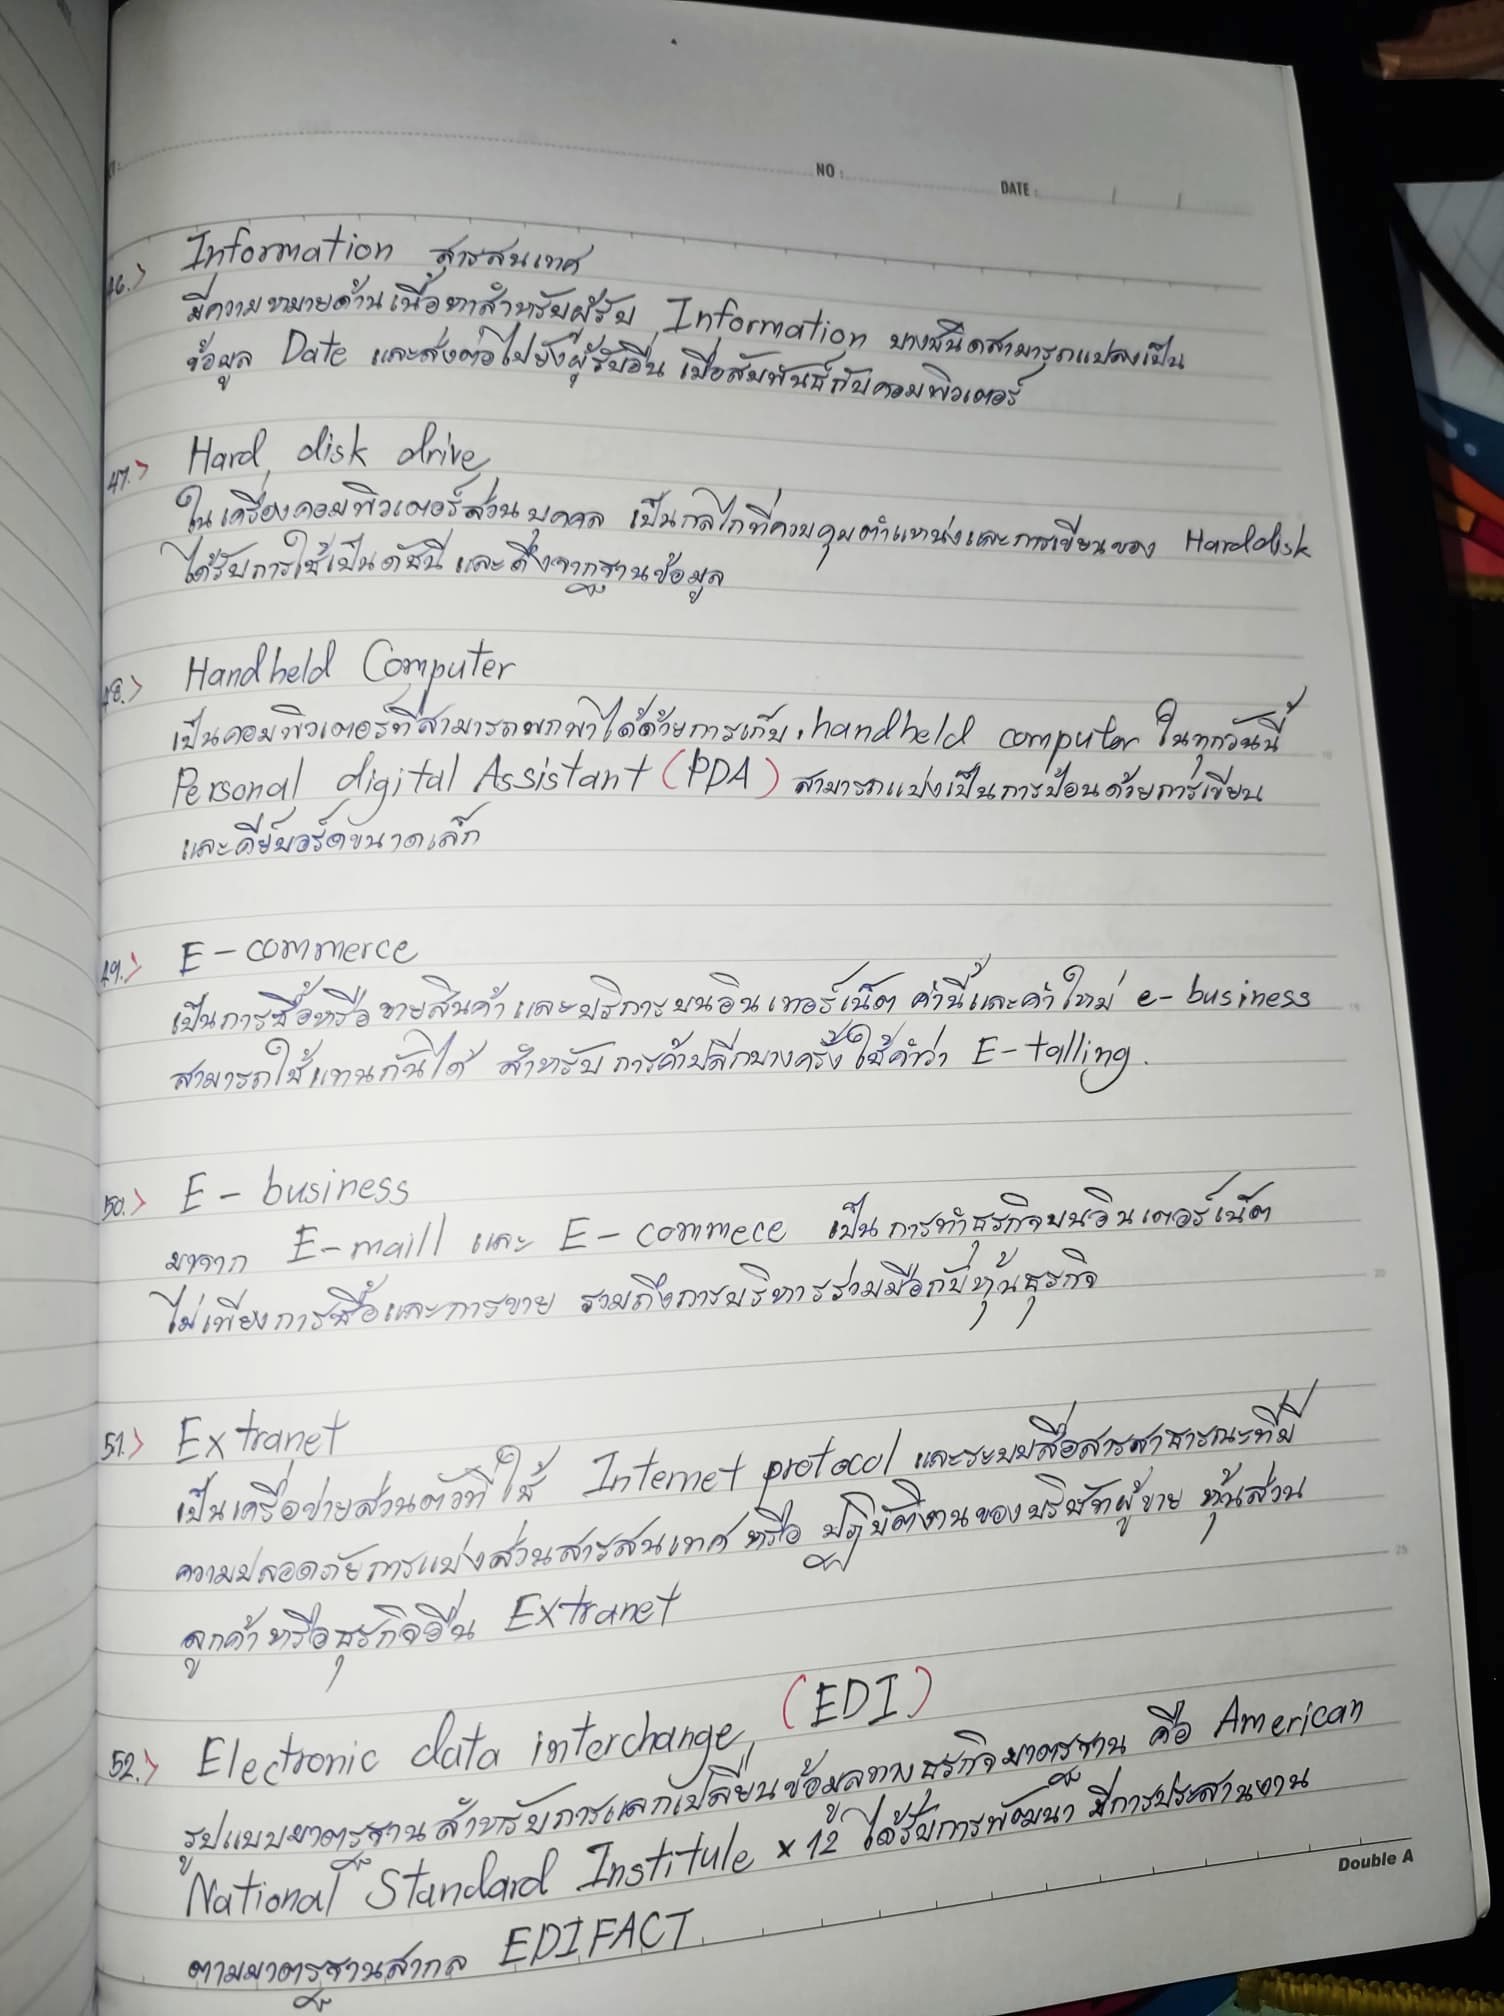 NO :
DATE :
46.> Information สารสนเทศ
มีความหมายด้านเนื้อหาสำหรับผู้รับ Information บางชนิดสามารถแปลงเป็น
ข้อมูล Date และส่งต่อไปยังผู้รับอื่น เมื่อสัมพันธ์กับคอมพิวเตอร์
47.> Hard disk drive
ในเครื่องคอมพิวเตอร์ส่วนบุคคล เป็นกลไกที่ควบคุมตำแหน่งและการเขียนของ Harddisk
ได้รับการใช้เป็นดัชนี และดึงจากฐานข้อมูล
48.> Handheld Computer
เป็นคอมพิวเตอร์ที่สามารถพกพาได้ด้วยการเก็บ handheld computer ในทุกวันนี้
Personal digital Assistant (PDA) สามารถแบ่งเป็นการป้อนด้วยการเขียน
และคีย์บอร์ดขนาดเล็ก
49.> E-commerce
เป็นการซื้อหรือขายสินค้าและบริการบนอินเทอร์เน็ต คำนี้และคำใหม่ e-business
สามารถใช้แทนกันได้ สำหรับการค้าปลีกบางครั้งใช้คำว่า E-talling.
50.> E-business
มาจาก E-maill และ E-commece เป็นการทำธุรกิจบนอินเตอร์เน็ต
ไม่เพียงการซื้อและการขาย รวมถึงการบริหารร่วมมือกับหุ้นธุรกิจ
51.> Extranet
เป็นเครือข่ายส่วนตัวที่ใช้ Internet protocol และระบบสื่อสารสาธารณะที่มี
ความปลอดภัยการแบ่งส่วนสารสนเทศหรือ ปฏิบัติงานของบริษัทผู้ขาย หุ้นส่วน
ลูกค้าหรือธุรกิจอื่น Extranet
52.> Electronic data interchange (EDI)
รูปแบบมาตรฐานสำหรับการแลกเปลี่ยนข้อมูลทางธุรกิจมาตรฐาน คือ American
National Standard Institule x 12 ได้รับการพัฒนา มีการประสานงาน
ตามมาตรฐานสากล EDIFACT
Double A